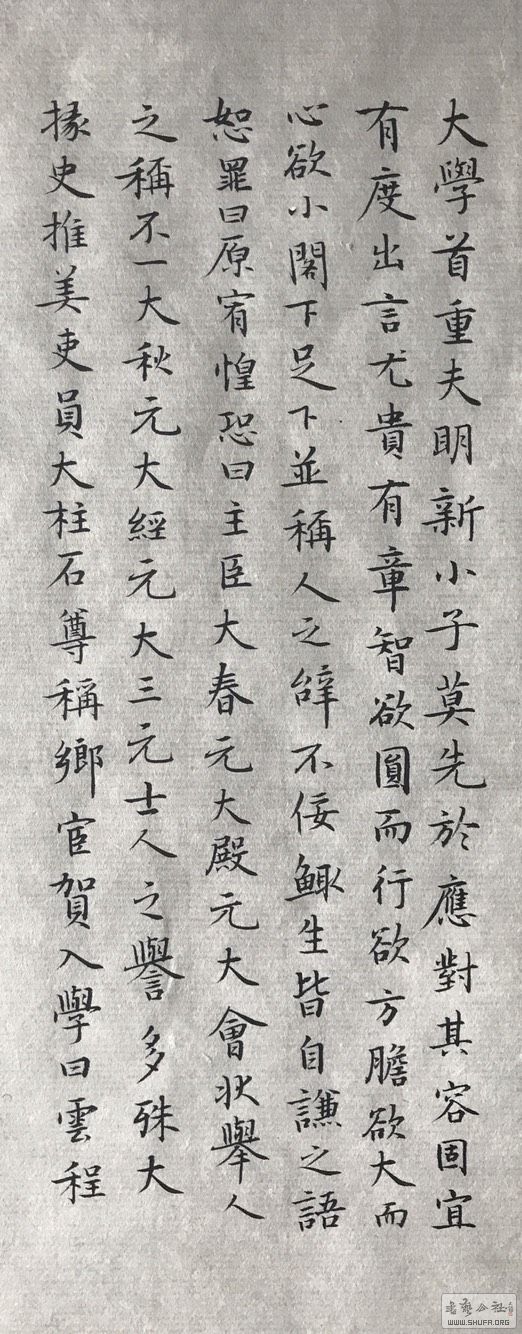 大學首重夫明新小子莫先於應對其容固宜
有度出言尤貴有章智欲圓而行欲方膽欲大而
心欲小閣下足下並稱人之辭不佞鯫生皆自謙之語
恕罪曰原宥惶恐曰主臣大春元大殿元大會狀舉人
之稱不一大秋元大經元大三元士人之譽多殊大
掾史推美吏員大柱石尊稱鄉宦賀入學曰雲程
書藝公社
WWW.SHUFA.ORG